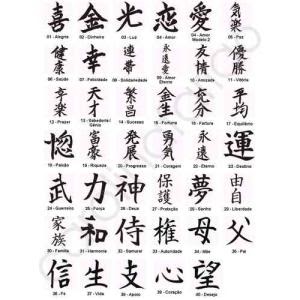 喜 金 光 恋 愛 気楽
01 - Alegria 02 - Dinheiro 03 - Luz 04 - Amor 04 - Amor Modelo 2 05 - Paz
健康 幸 連帯 永遠愛 友情 優勝
06 - Saúde 07 - Felicidade 08 - Solidariedade 09 - Amor Eterno 10 - Amizade 11 - Vitória
幸楽 繁昌 金生 充分 平均
12 - Prazer 13 - Sabedoria / Gênio 14 - Sucesso 15 - Fortuna 16 - Fartura 17 - Equilíbrio
惚 富豪 発展 永遠 運
18 - Paixão 19 - Riqueza 20 - Progresso 21 - Caminho 22 - Eterno 23 - Destino
武 力 神 保護 夢 自由
24 - Guerreiro 25 - Força 26 - Deus 27 - Proteção 28 - Sonho 29 - Liberdade
家族 和 侍 権 母 父
30 - Família 31 - Harmonia 32 - Samurai 33 - Autoridade 34 - Mãe 35 - Pai
信 生 支 心 望
36 - Fé 37 - Vida 38 - Apoio 39 - Coração 40 - Desejo